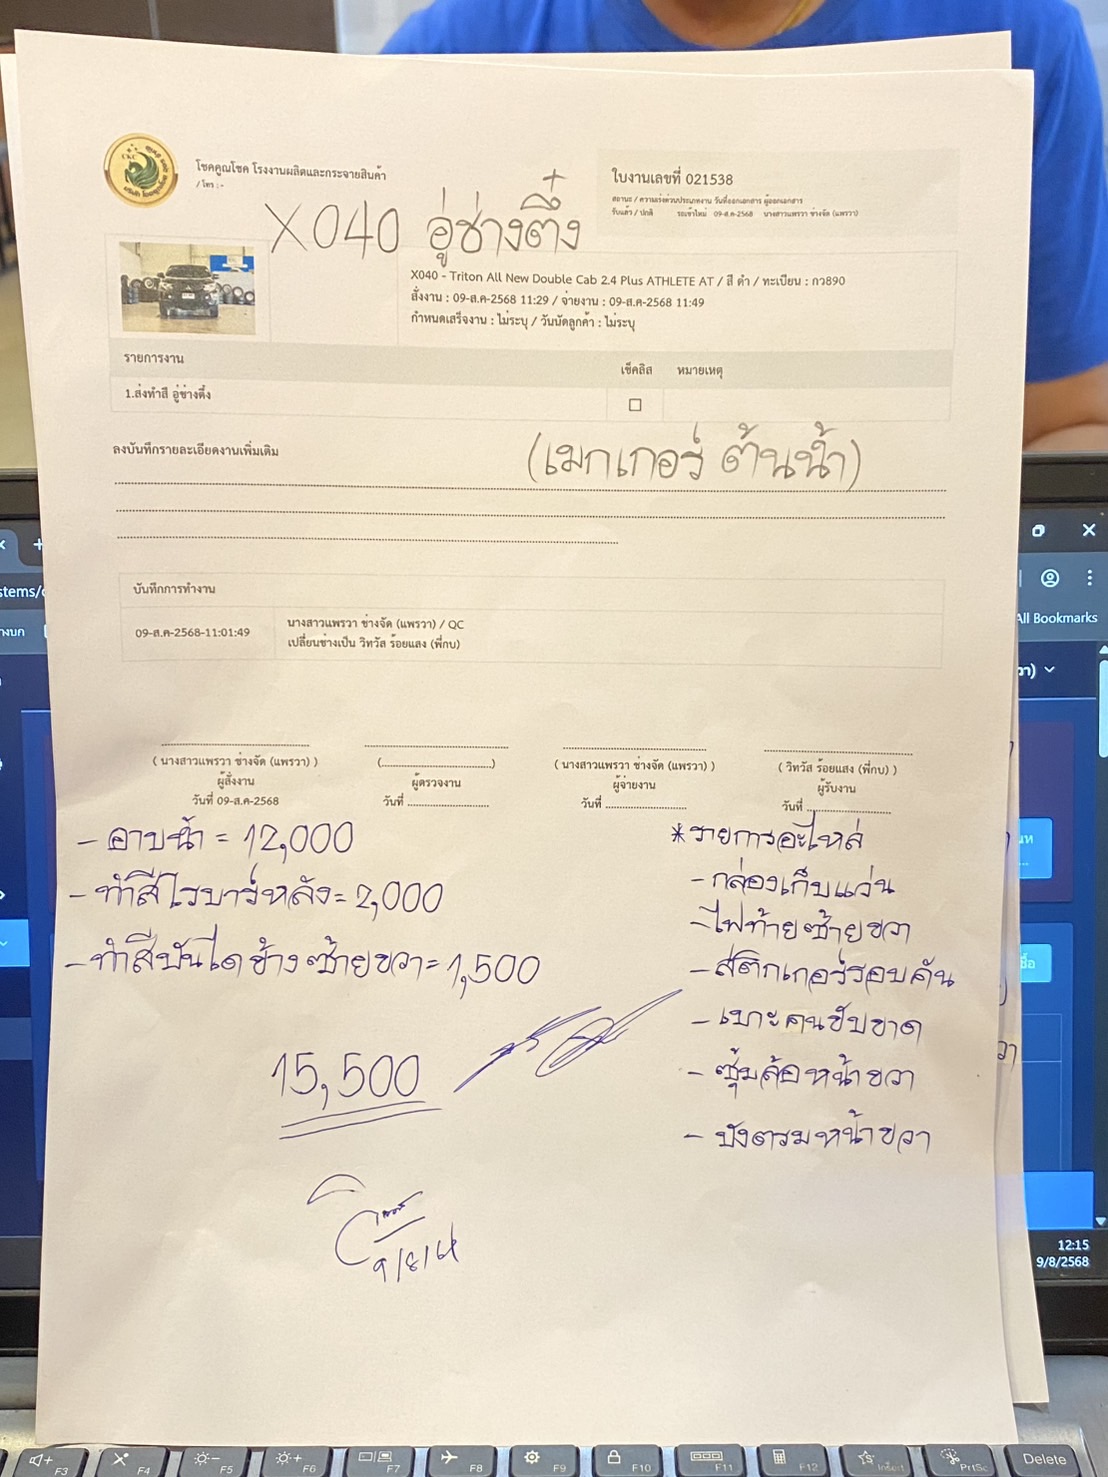 โชคคูณโชค โรงงานผลิตและกระจายสินค้า
/ โทร : -
ใบงานเลขที่ 021538
สถานะ / ความเร่งด่วนประเภทงาน วันที่ออกเอกสาร ผู้ออกเอกสาร
รับแล้ว / ปกติ รถเข้าใหม่ 09-ส.ค-2568 นางสาวแพรวา ช่างจัด (แพรวา)
X040 อู่ช่างตึ๋ง
X040 - Triton All New Double Cab 2.4 Plus ATHLETE AT / สี ดำ / ทะเบียน : กว890
สั่งงาน : 09-ส.ค-2568 11:29 / จ่ายงาน : 09-ส.ค-2568 11:49
กำหนดเสร็จงาน : ไม่ระบุ / วันนัดลูกค้า : ไม่ระบุ
รายการงาน เช็คลิส หมายเหตุ
1.ส่งทำสี อู่ช่างตึ๋ง
ลงบันทึกรายละเอียดงานเพิ่มเติม
(เมกเกอร์ ต้นน้ำ)
บันทึกการทำงาน
09-ส.ค-2568-11:01:49
นางสาวแพรวา ช่างจัด (แพรวา) / QC
เปลี่ยนช่างเป็น วิทวัส ร้อยแสง (พี่กบ)
( นางสาวแพรวา ช่างจัด (แพรวา) ) (......................................) ( นางสาวแพรวา ช่างจัด (แพรวา) ) ( วิทวัส ร้อยแสง (พี่กบ) )
ผู้สั่งงาน ผู้ตรวจงาน ผู้จ่ายงาน ผู้รับงาน
วันที่ 09-ส.ค-2568 วันที่ ........................... วันที่ ........................... วันที่ ...........................
- อาบน้ำ = 12,000
- ทำสีโรบาร์หลัง = 2,000
- ทำสีบันไดข้างซ้ายขวา = 1,500
15,500
9/8/68
*รายการอะไหล่
- กล่องเก็บแว่น
- ไฟท้ายซ้ายขวา
- สติกเกอร์รอบคัน
- เบาะคนขับขาด
- ซุ้มล้อหน้าขวา
- บังตรมหน้าขวา
All Bookmarks
12:15
9/8/2568
F3
F4
F5
F6
F7
F8
F9
F10
F11
F12
Insert
PrtSc
Delete